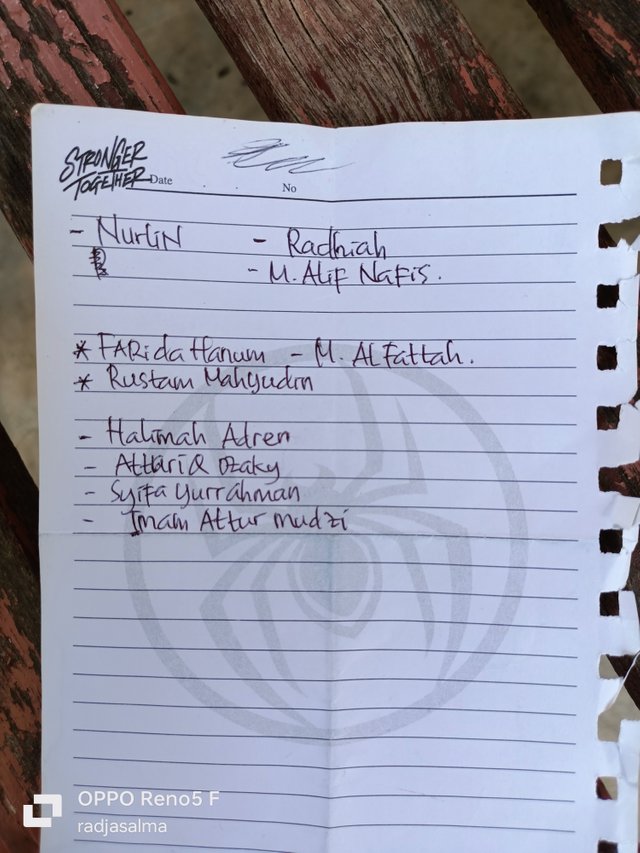 STRONGER
TOGETHER
Date
No
- NurliN - Radhiah
- M. Alif Nafis.
* FARida Hanum - M. AlFattah.
* Rustam Mahyudin
- Halimah Adren
- Attari Q Dzaky
- Syifa Yurrahman
- Imam Attur mudzi
OPPO Reno5 F
radjasalma